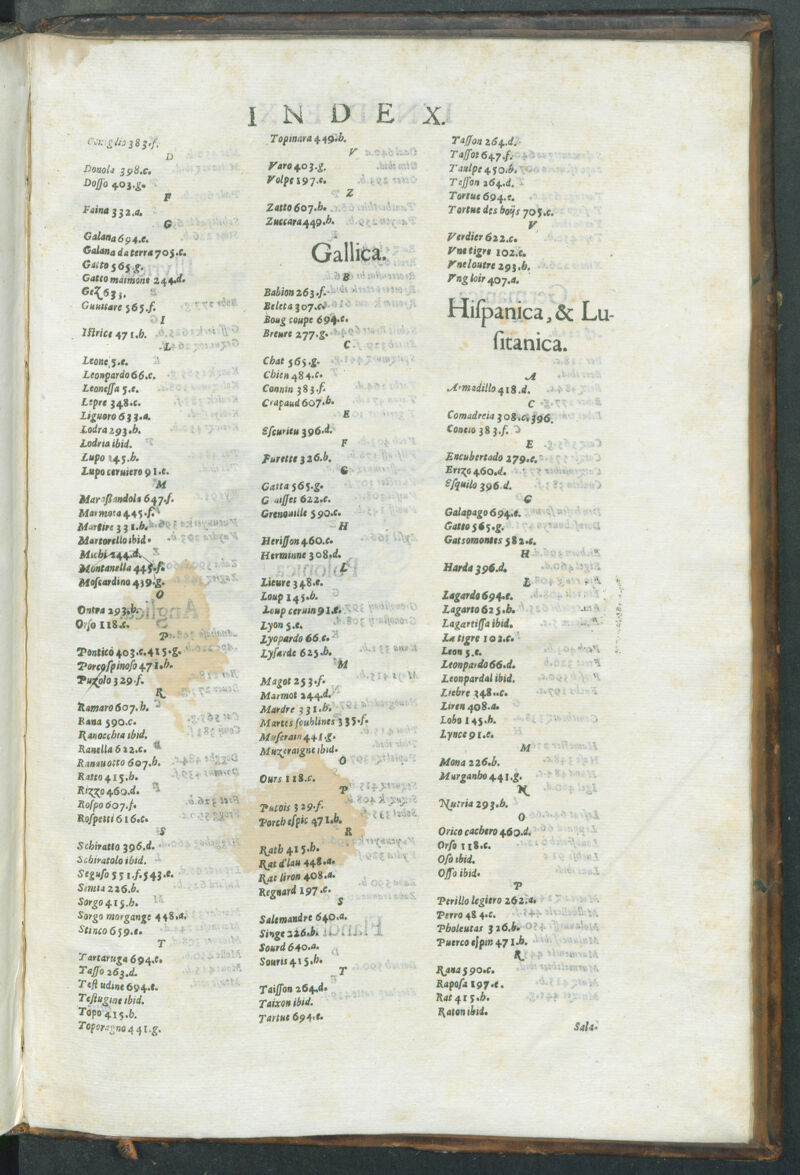 INDEX.
Coniglio 383.f.
D
Donola 398.c.
Dosso 403.g.
F
Faina 332.a.
G
Galana 694.e.
Galana da terra 705.c.
Gatto 565.g.
Gatto maimone 244.d.
565.f.
I
Istrice 471.b.
L
Leone 5.e.
Leonpardo 66.c.
Leonessa 5.e.
Lepre 348.c.
Liguoro 633.a.
Lodra 293.b.
Lodria ibid.
Lupo 145.b.
Lupo ceruiero 91.e.
M
Maraßandola 647.f.
Marmota 445.f.
Martire 331.b.
Martorello ibid.
244.d.
Montanella 445.f.
Moscardino 439.g.
O
Ontra 293.b.
Orso 118.c.
P
Pontico 403.c.415.g.
Porcospinoso 471.b.
Puzolo 329.f.
R
Ramaro 607.b.
Rana 590.c.
Ranocchia ibid.
Ranella 622.c.
Ranauotto 607.b.
Ratto 415.b.
Rizzo 460.d.
Rospo 607.f.
Rospetti 616.c.
S
Schiratto 396.d.
Schiratolo ibid.
Seguso 551.f.543.e.
Simia 226.b.
Sorgo 415.b.
Sorgo morgange 448.a.
Stinco 659.e.
T
Tartaruga 694.e.
Tasso 263.d.
Testudine 694.e.
Testugine ibid.
Topo 415.b.
Toporagno 441.g.
Topinara 449.b.
V
Varo 403.g.
Volpe 197.e.
Z
Zatto 607.b.
Zuccara 449.b.
Gallica.
B
Babion 263.f.
Beleta 307.c.
Boug coupe 694.e.
Breure 277.g.
C
Chat 565.g.
Chien 484.c.
Connin 383.f.
Crapaud 607.b.
E
Escurieu 396.d.
F
Furette 326.b.
G
Gatta 565.g.
G aisses 622.c.
Grenouille 590.c.
H
Herisson 460.c.
Herminne 308.d.
L
Lieure 348.e.
Loup 145.b.
Loup ceruin 91.e.
Lyon 5.e.
Lyopardo 66.e.
Lysarde 625.b.
M
Magot 253.f.
Marmot 244.d.
Mardre 331.b.
Martes soublines 335.f.
Muserain 441.g.
Muzeraigne ibid.
O
Ours 118.c.
P
Putois 329.f.
Porch espic 471.b.
R
Rath 415.b.
Rat d'lau 448.a.
Rat liron 408.a.
Regnard 197.e.
S
Salemandre 640.a.
Singe 226.b.
Sourd 640.a.
Souris 415.b.
T
Taisson 264.d.
Taixon ibid.
Tartue 694.e.
Tasson 264.d.
Tassot 647.f.
Taulpe 450.b.
Tesson 264.d.
Tortue 694.e.
Tortue des boijs 705.c.
V
Verdier 622.c.
Vne tigre 102.c.
Vne loutre 293.b.
Vng loir 407.a.
Hispanica, & Lu-
sitanica.
A
Armadillo 418.d.
C
Comadreia 308.c.396.
Coneio 383.f.
E
Encubertado 279.e.
Erizo 460.d.
Esquilo 396.d.
G
Galapago 694.e.
Gatto 565.g.
Gatsomontes 582.e.
H
Harda 396.d.
L
Lagardo 694.e.
Lagarto 625.b.
Lagartissa ibid.
La tigre 102.c.
Leon 5.e.
Leonpardo 66.d.
Leonpardal ibid.
Liebre 348.c.
Liren 408.a.
Lobo 145.b.
Lynce 91.e.
M
Mona 226.b.
Murganho 441.g.
N
Nutria 293.b.
O
Orico cachero 460.d.
Orso 118.c.
Oso ibid.
Osso ibid.
P
Perillo legiero 262.a.
Perro 484.c.
Pholeutas 326.b.
Puerco espin 471.b.
R
Rana 590.c.
Raposa 197.e.
Rat 415.b.
Raton ibid.
Sala-